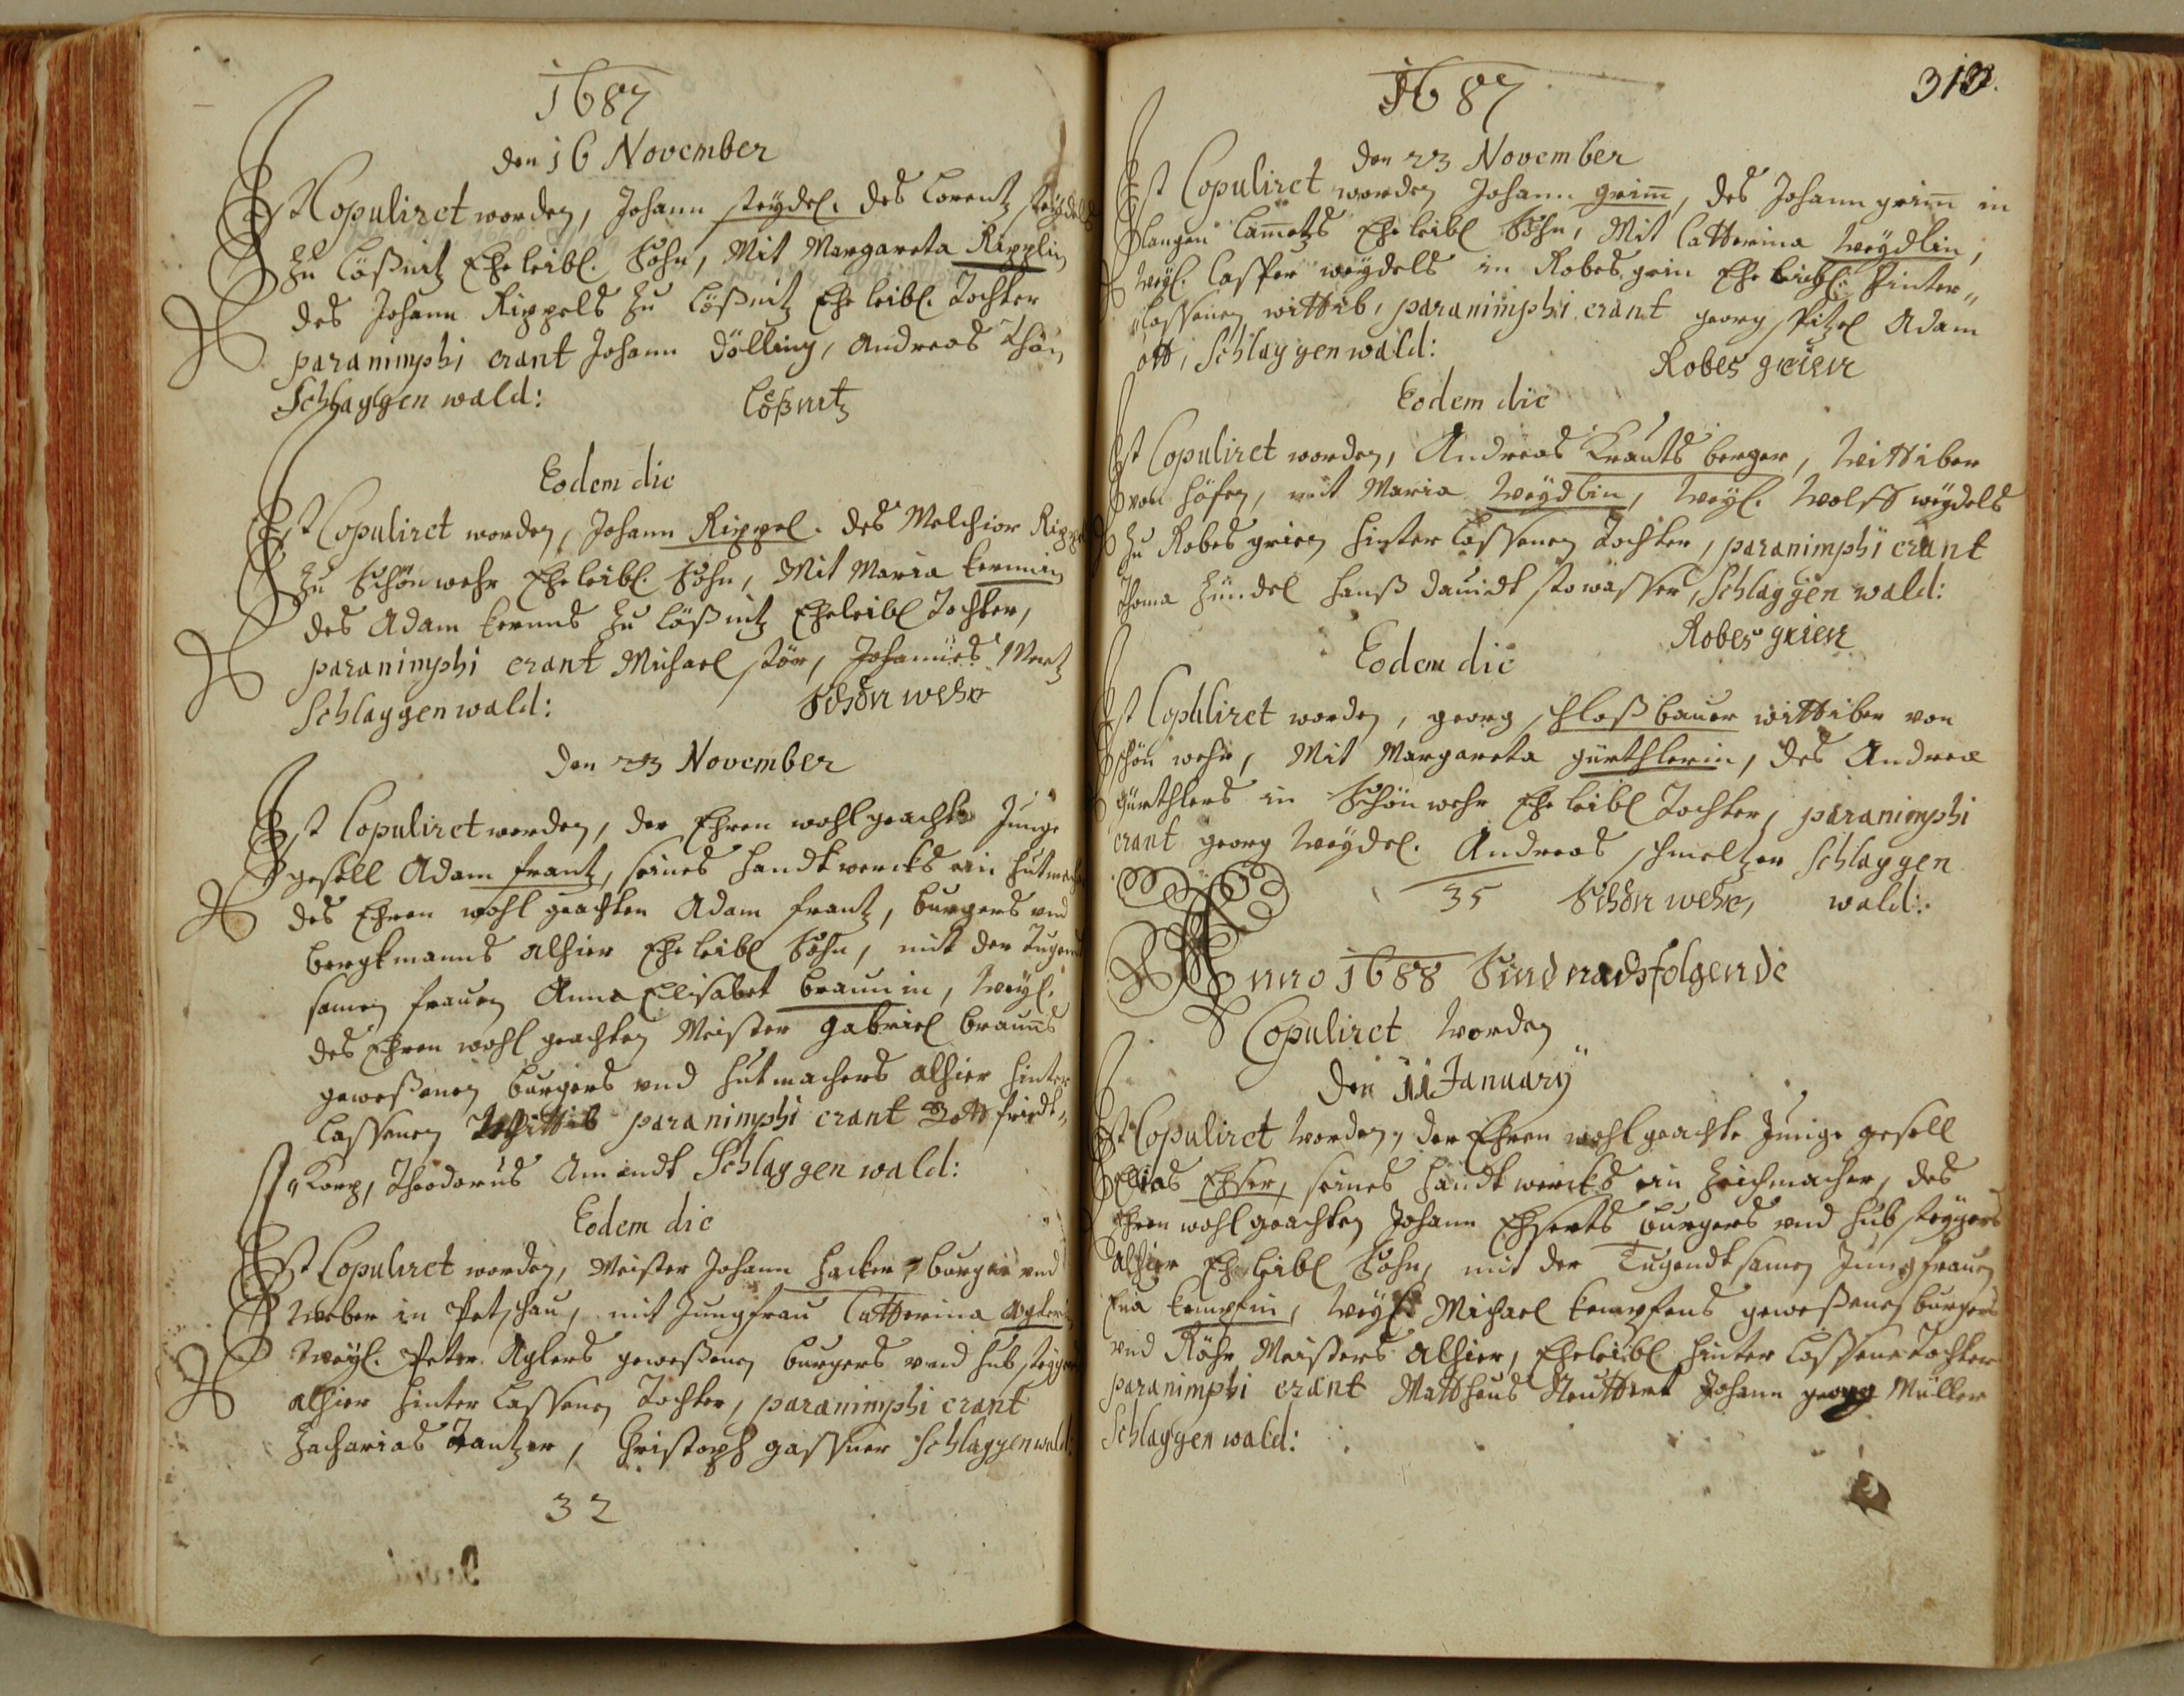 1687
den 16 November
Ist Copuliret worden, Johann Steydel. des Lorentz Steydels
zu Lößnitz Eheleibl. Sohn, Mit Margareta Ripplin
des Johann Rippels zu Lößnitz Eheleibl. Tochter
paranimphi erant Johann Dölling, Andreas
Schlaggenwald: Lößnitz
Eodem die
Ist Copuliret worden, Johann Rippel. des Melchior
zu Schönwehr Eheleibl. Sohn, Mit Maria
des Adam zu Lößnitz Eheleibl Tochter,
paranimphi erant Michael Stör, Johannes
Schlaggenwald: Schönwehr
den 23 November
Ist Copuliret worden, der Ehren wohlgeachte Junge
gesell Adam frantz, seines handtwercks ein
des Ehren wohl geachten Adam frantz, burgers vnd
bergkmanns alhier Eheleibl Sohn, mit der
samen frauen Anna Elisabet braunin, weyl.
des Ehren wohl geachten Meister gabriel brauns
geweßenen burgers vnd hutmachers alhier hinter
lassenen Wittib paranimphi erant Gottfriedt
Korp, Theodorus Amendt Schlaggenwald:
Eodem die
Ist Copuliret worden, Meister Johann Hacker, burger vnd
weber in Petschau, mit Jungfrau Catterina
weyl. Peter Aglers geweßenen burgers vnd
alhier hinterlassenen Tochter, paranimphi erant
Zacharias Tantzer, Christoph gassner Schlaggenwald:
32
1687
313.
den 23 November
Ist Copuliret worden Johann grim̄, des Johann grim̄ in
langen Lam̄etz Eheleibl Sohn, Mit Catterina weydlin,
weyl. Casper weydels in Robes grin Eheleibl. hinter„
„lassenen wittib, paranimphi erant georg Pitzel Adam
ott, Schlaggenwald: Robes grien
Eodem die
Ist Copuliret worden, Andreas Krautsberger, Wittiber
von Höfen, mit Maria weydlin, weyl. Wolff weydels
zu Robes grien hinterlassenen Tochter, paranimphi erant
Thoma Zündel Hanß dauidt stowasser, Schlaggenwald:
Robes grien
Eodem die
Ist Copuliret worden, georg schloßbauer wittiber von
schön wehr, Mit Margareta gürthlerin, des Andrea
gürthlers in Schönwehr Eheleibl Tochter, paranimphi
erant georg weydel. Andreas schmeltzer Schlaggen
35 Schönwehr, wald:
Anno 1688 Sind nachfolgende
Copuliret worden
Den 11 January
Ist Copuliret worden, der Ehren wohl geachte Junge gesell
Elias, seines handtwercks ein Zeichmacher, des
Ehren wohl geachten Johann burgers vnd
alhier Eheleibl Sohn, mit der Tugendtsamen Jungfrauen
Eua kempfin, weyl. Michael kempfens geweßenes burgers
vnd Röhr Meisters alhier, Eheleibl hinterlassene Tochter
paranimphi erant Mattheus Johann georg Müller
Schlaggenwald: